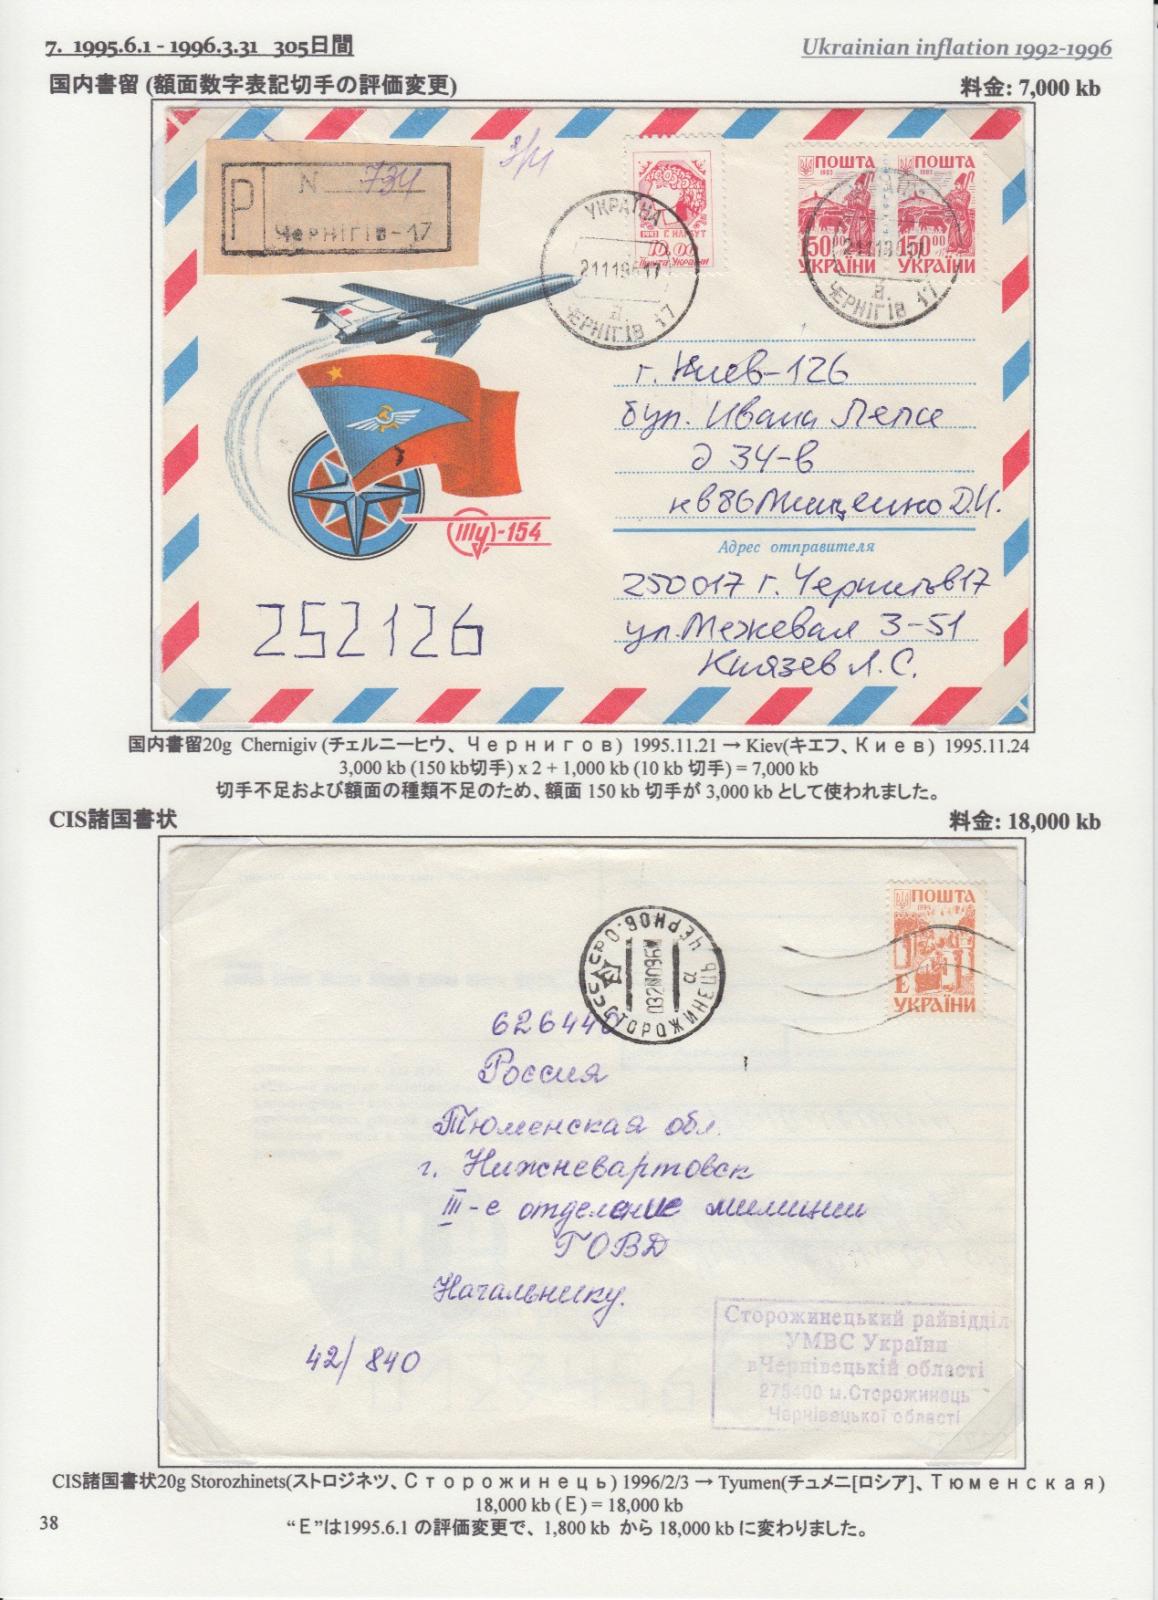 7. 1995.6.1 - 1996.3.31 305日間
Ukrainian inflation 1992-1996
国内書留 (額面数字表記切手の評価変更)
料金: 7,000 kb
Р N 734
Чернігів-17
3/11
УКРАЇНА
21111995 17
ЧЕРНІГІВ 17
1993 Г. НАРБУТ
10.00
Пошта України
ПОШТА
1993
150.00
УКРАЇНИ
ПОШТА
1993
150.00
УКРАЇНИ
ЧЕРНІГІВ 17
г. Киев-126
бул. Ивана Лепсе
д 34-в
кв86 Мищенко Д.И.
Адрес отправителя
250017 г. Чернигов 17
ул. Межевая 3-51
Князев Л.С.
Ту-154
252126
国内書留20g Chernigiv (チェルニーヒウ、Чернигов) 1995.11.21 → Kiev(キエフ、Киев) 1995.11.24
3,000 kb (150 kb切手) x 2 + 1,000 kb (10 kb 切手) = 7,000 kb
切手不足および額面の種類不足のため、額面 150 kb 切手が 3,000 kb として使われました。
CIS諸国書状
料金: 18,000 kb
СССР ЧЕРНОВ. О.
СТОРОЖИНЕЦЬ а
ПОШТА
Е
УКРАЇНИ
626440
Россия
Тюменская обл.
г. Нижневартовск
III-е отделение милиции
ГОВД
Начальнику.
42/840
Сторожинецький райвідділ
УМВС України
в Чернівецькій області
275400 м.Сторожинець
Чернівецької області
CIS諸国書状20g Storozhinets(ストロジネツ、Сторожинець) 1996/2/3 → Tyumen(チュメニ[ロシア]、Тюменская)
18,000 kb (Е) = 18,000 kb
“Е”は1995.6.1 の評価変更で、1,800 kb から 18,000 kb に変わりました。
38